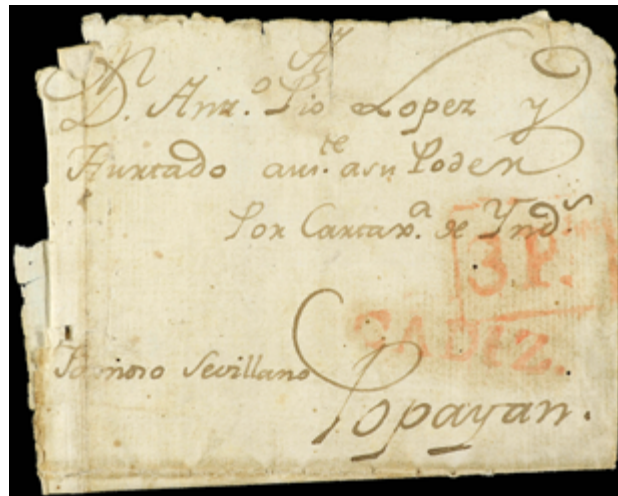 D. Ant.o Pio Lopez y
Hurtado aus.te asu Poder
Por Cartax.a de Ynd.s
3P.
CADIZ.
Sevillano
Popayan.